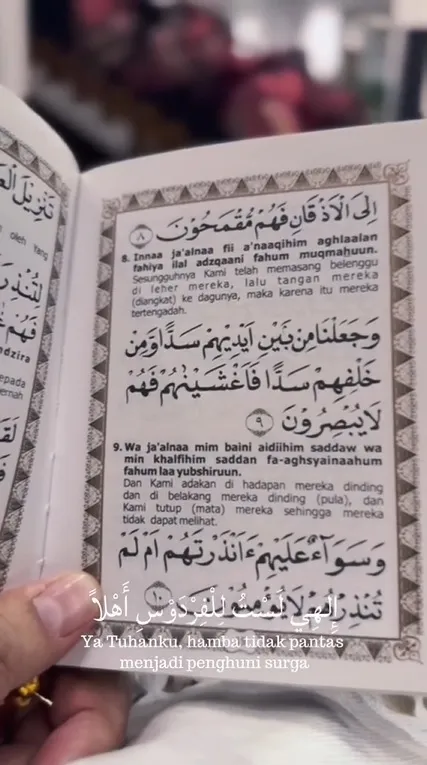 تَنْزِيلَ
oleh Yang
لِتُنْذِرَ
فَهُمْ
adzira
epada
ernah
لَقَدْ
إِلَى الْأَذْقَانِ فَهُمْ مُقْمَحُوْنَ ٨
8. Innaa ja'alnaa fii a'naaqihim aghlaalan
fahiya ilal adzqaani fahum muqmahuun.
Sesungguhnya Kami telah memasang belenggu
di leher mereka, lalu tangan mereka
(diangkat) ke dagunya, maka karena itu mereka
tertengadah.
وَجَعَلْنَا مِنْ بَيْنِ اَيْدِيْهِمْ سَدًّا وَّمِنْ
خَلْفِهِمْ سَدًّا فَاَغْشَيْنٰهُمْ فَهُمْ
لَا يُبْصِرُوْنَ ٩
9. Wa ja'alnaa mim baini aidiihim saddaw wa
min khalfihim saddan fa-aghsyainaahum
fahum laa yubshiruun.
Dan Kami adakan di hadapan mereka dinding
dan di belakang mereka dinding (pula), dan
Kami tutup (mata) mereka sehingga mereka
tidak dapat melihat.
وَسَوَآءٌ عَلَيْهِمْ ءَاَنْذَرْتَهُمْ اَمْ لَمْ
إِلٰهِي لَسْتُ لِلْفِرْدَوْسِ أَهْلاً
Ya Tuhanku, hamba tidak pantas
menjadi penghuni surga